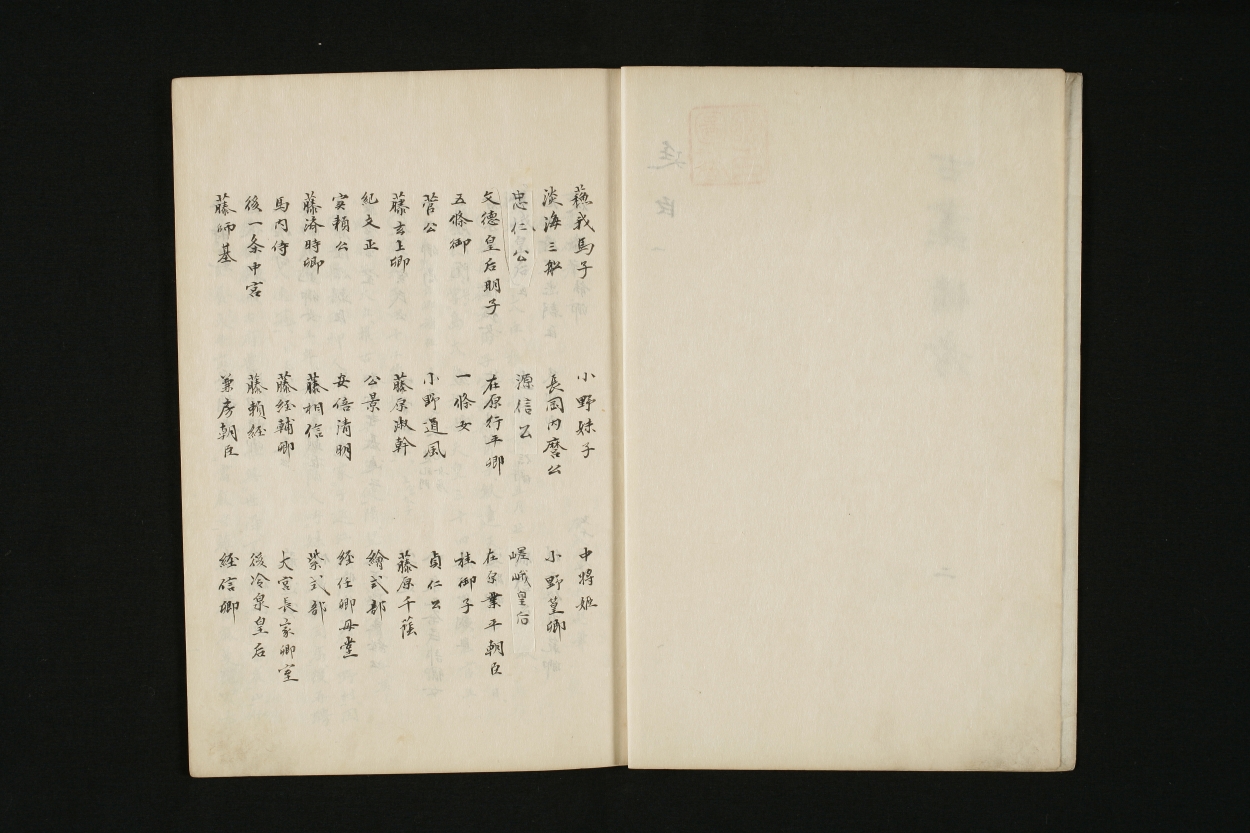 蘇我馬子
小野妹子
中将姫
淡海三船
長岡内麿公
小野篁卿
忠仁公
源信公
嵯峨皇后
文徳皇后明子
在原行平卿
在原業平朝臣
五條御
一條女
桂御子
菅公
小野道風
貞仁公
藤玄上卿
藤原淑幹
藤原千蔭
紀文正
公景
繪式部
実頼公
安倍清明
経任卿母堂
藤済時卿
藤相信
紫式部
馬内侍
藤経輔卿
大宮長家卿室
後一条中宮
藤頼経
後冷泉皇后
藤師基
兼房朝臣
経信卿